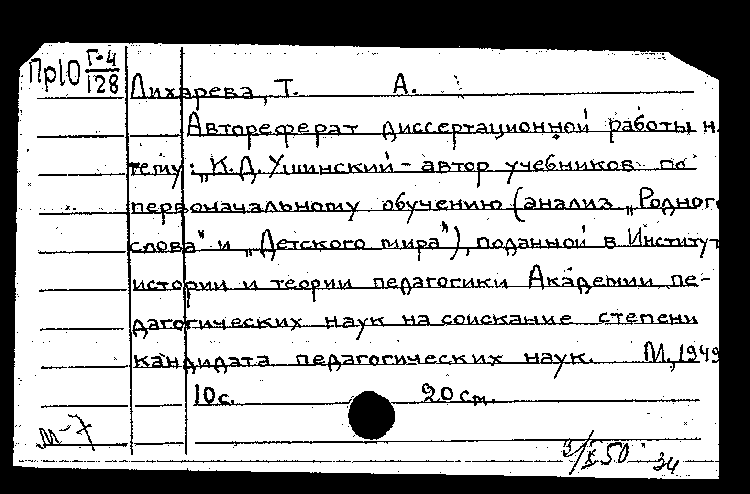 Пр10 Г-4
128
Лихарева, Т. А.
Автореферат диссертационной работы н.
тему: „К.Д. Ушинский – автор учебников по
первоначальному обучению (анализ „Родного
слова" и „Детского мира"), поданной в Институт
истории и теории педагогики Академии пе-
дагогических наук на соискание степени
кандидата педагогических наук. М., 1949
10 с. 20 см.
м-7
3/X 50 34